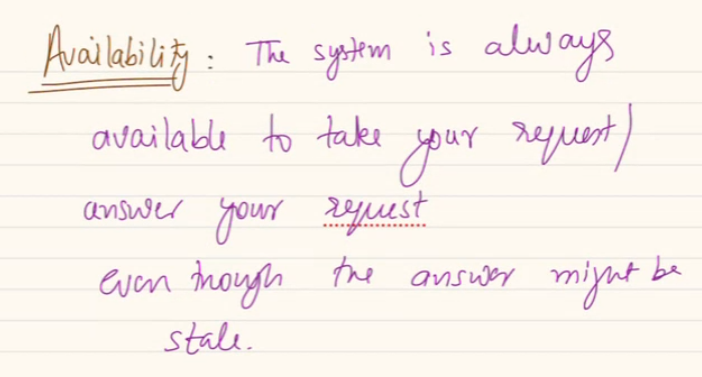 Availability : The system is always
available to take your request/
answer your request
even though the answer might be
stale.